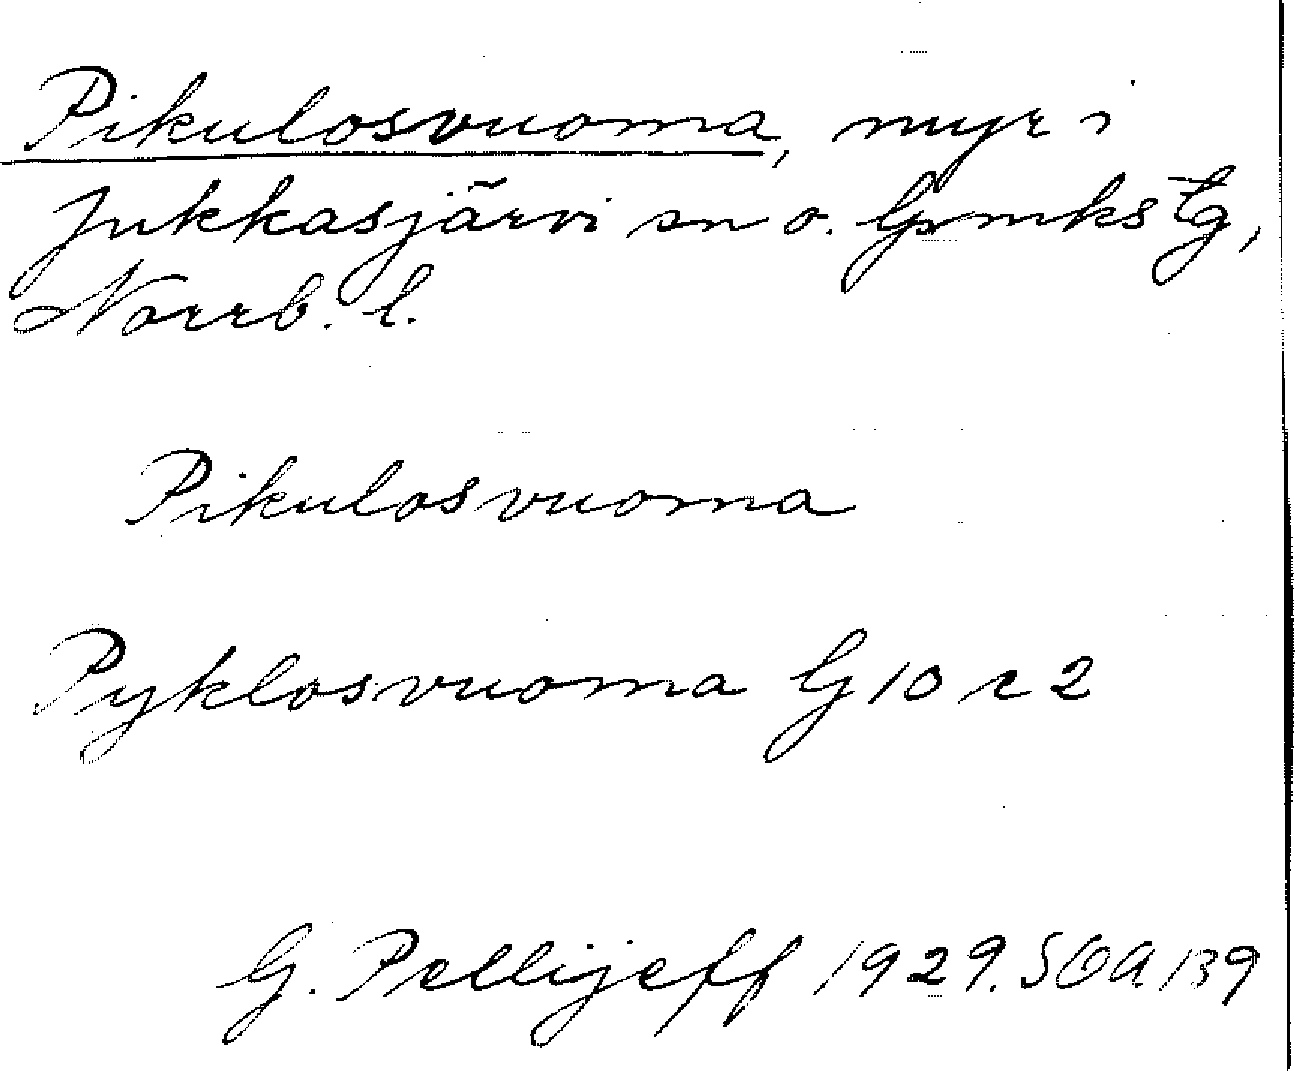 Pikulosvuoma, myr i
Jukkasjärvi sn o. Gvmks tg,
Norrb. l.
Pikulosvuoma
Pyklosvuoma G 10 r 2
G. Pellijeff 1929. SOA 139